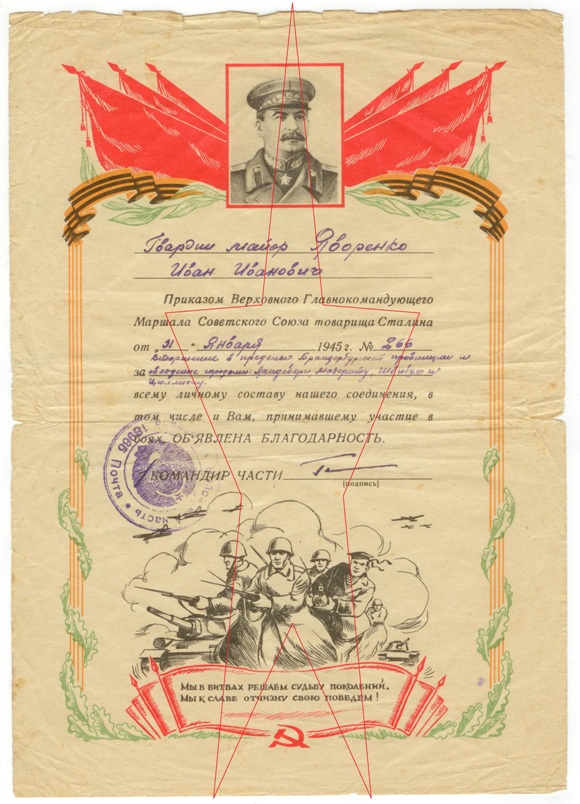 Гвардии майор Яворенко
Иван Иванович
Приказом Верховного Главнокомандующего
Маршала Советского Союза товарища Сталина
от „31 " Января 1945 г. № 266
вторжение в пределы Бранденбургской провинции и
за овладение городами Ландсберг, Мезеритц, Швибус и
Цюллихау.
всему личному составу нашего соединения, в
том числе и Вам, принимавшему участие в
боях, ОБ'ЯВЛЕНА БЛАГОДАРНОСТЬ.
КОМАНДИР ЧАСТИ
(подпись)
часть * Почт 18966
МЫ В БИТВАХ РЕШАЕМ СУДЬБУ ПОКОЛЕНИЙ,
МЫ К СЛАВЕ ОТЧИЗНУ СВОЮ ПОВЕДЕМ!